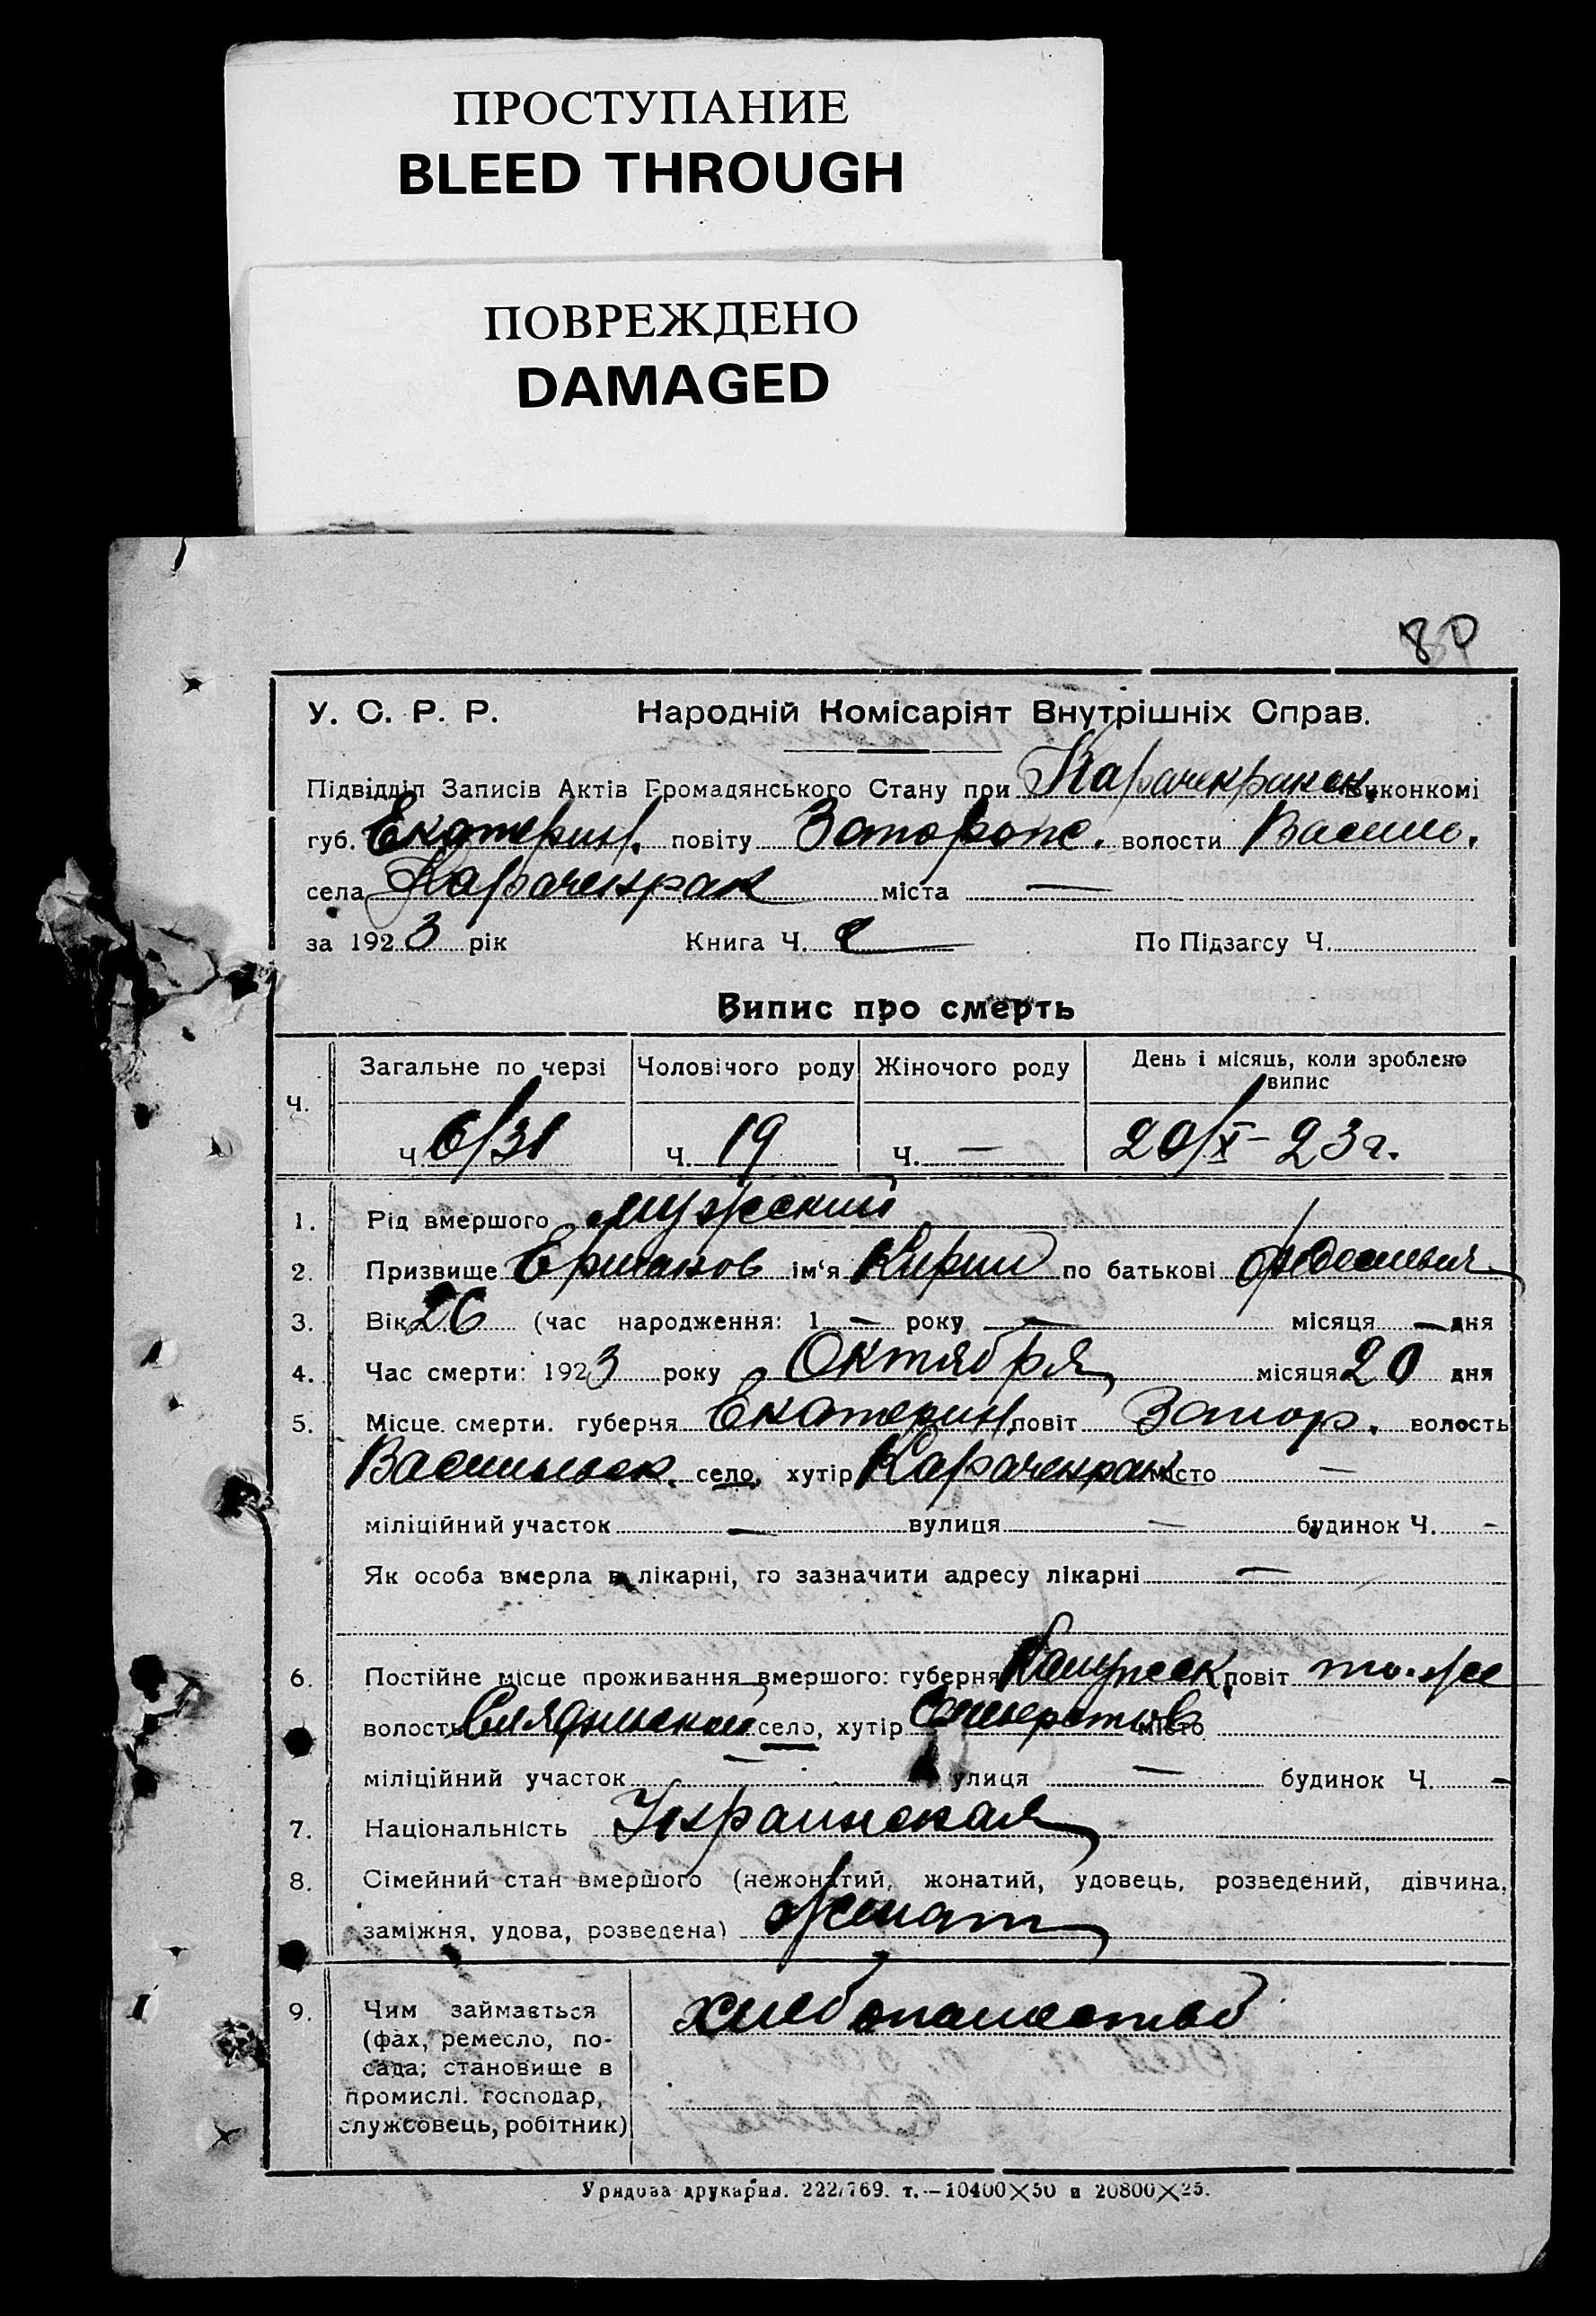 ПРОСТУПАНИЕ
BLEED THROUGH
ПОВРЕЖДЕНО
DAMAGED
У. С. Р. Р. Народній Комісаріят Внутрішніх Справ.
Підвідділ Записів Актів Громадянського Стану при Карачекракск. Виконкомі
губ. Екатерин. повіту Запорож. волости Василь.
села Карачекрак міста —
за 1923 рік Книга Ч. По Підзагсу Ч.
Випис про смерть
Ч. Загальне по черзі Чоловічого роду Жіночого роду День і місяць, коли зроблено випис
ч. 6/31 ч. 19 ч. — 20/X – 23 г.
1. Рід вмершого мужской
2. Призвище Ермаков ім'я Кирил по батькові
3. Вік 26 (час народження: 1 — року — місяця — дня
4. Час смерти: 1923 року Октября місяця 20 дня
5. Місце смерти. губерня Екатерин. повіт Запор. волость
Васильевск. село, хутір Карачекрак місто —
міліційний участок — вулиця — будинок Ч. -
Як особа вмерла в лікарні, то зазначити адресу лікарні —
6. Постійне місце проживання вмершого: губерня Калужск. повіт то-же
волость село, хутір місто —
міліційний участок — вулиця — будинок Ч. —
7. Національність Украинская
8. Сімейний стан вмершого (нежонатий, жонатий, удовець, розведений, дівчина,
заміжня, удова, розведена) Женат
9. Чим займається хлебопашество
(фах, ремесло, по-
сада; становище в
промислі. господар,
службовець, робітник)
Урядова друкарня. 222/769. т.—10400×50 и 20800×25.